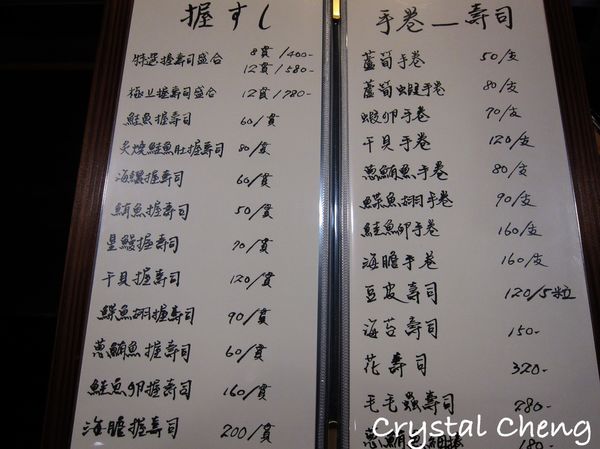 握すし
特選握壽司盛合 8貫/400-
12貫/580-
極上握壽司盛合 12貫/780-
鮭魚握壽司 60/貫
炙燒鮭魚肚握壽司 80/貫
海螺握壽司 60/貫
鮪魚握壽司 50/貫
星鰻握壽司 70/貫
干貝握壽司 120/貫
鰈魚翅握壽司 90/貫
蔥鮪魚握壽司 60/貫
鮭魚卵握壽司 160/貫
海膽握壽司 200/貫
手卷－壽司
蘆筍手卷 50/支
蘆筍蝦手卷 80/支
蝦卵手卷 70/支
干貝手卷 120/支
蔥鮪魚手卷 80/支
鰈魚翅手卷 90/支
鮭魚卵手卷 160/支
海膽手卷 160/支
豆皮壽司 120/5粒
海苔壽司 150-
花壽司 320-
毛毛蟲壽司 280-
蔥鮪魚細捲 180-
Crystal Cheng